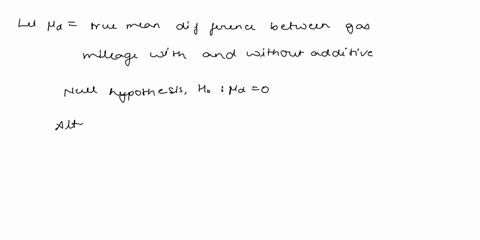 Let μd = true mean difference between gas
mileage with and without additive
Null hypothesis, H₀ : μd = 0
Alt